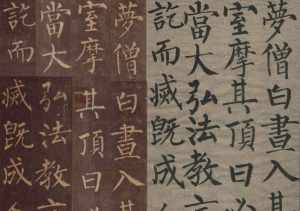 夢僧白晝入其
室摩其頂曰
當大弘法教言
訖而滅既成
夢僧白晝入其
室摩其頂曰
當大弘法教言
訖而滅既成